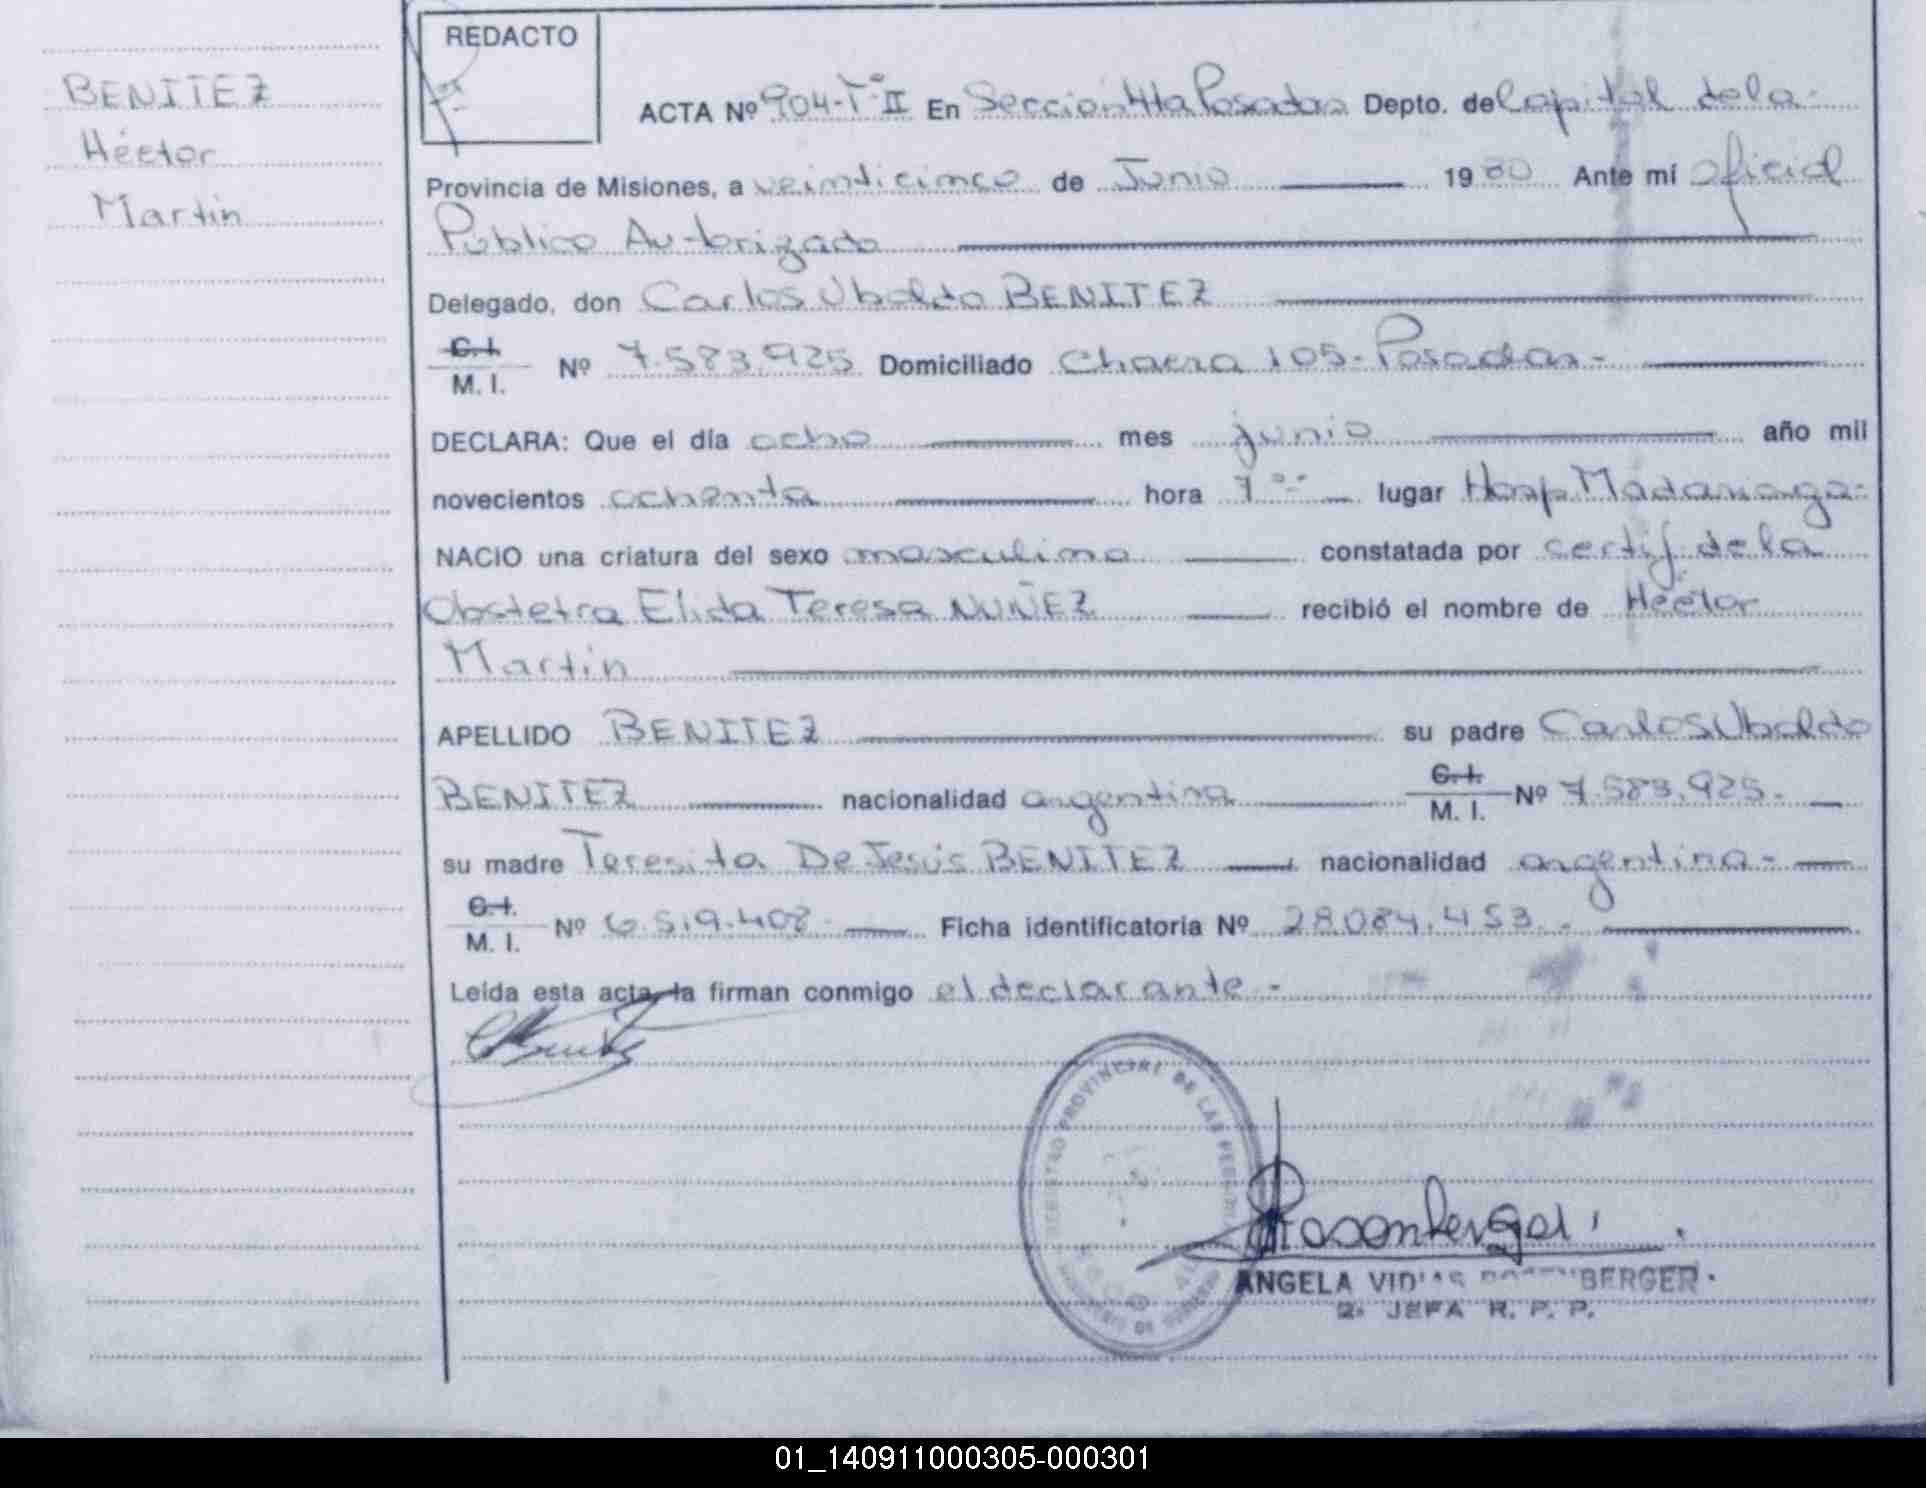 BENITEZ
Héctor
Martín
REDACTO
ACTA Nº 904-Tº II En Sección 4ta Posadas Depto. de Capital de la
Provincia de Misiones, a veinticinco de Junio 1980 Ante mí Oficial
Público Autorizado
Delegado, don Carlos Ubaldo BENITEZ
C.I.
M. I. Nº 7.583.925 Domiciliado Chacra 105-Posadas-
DECLARA: Que el día ocho mes junio año mil
novecientos ochenta hora 7 °° lugar Hosp. Madariaga-
NACIO una criatura del sexo masculino constatada por certif. de la
Obstetra Elida Teresa NUÑEZ recibió el nombre de Héctor
Martín
APELLIDO BENITEZ su padre Carlos Ubaldo
BENITEZ nacionalidad argentina C.I.
M. I. Nº 7.583.925.
su madre Teresita De Jesús BENITEZ nacionalidad argentina-
C.I.
M. I. Nº 6.519.408- Ficha identificatoria Nº 28.084.453.-
Leída esta acta, la firman conmigo el declarante-
REGISTRO PROVINCIAL DE LAS PERSONAS
Rosenberger
ANGELA ROSENBERGER
2ª JEFA R. P. P.
01_140911000305-000301